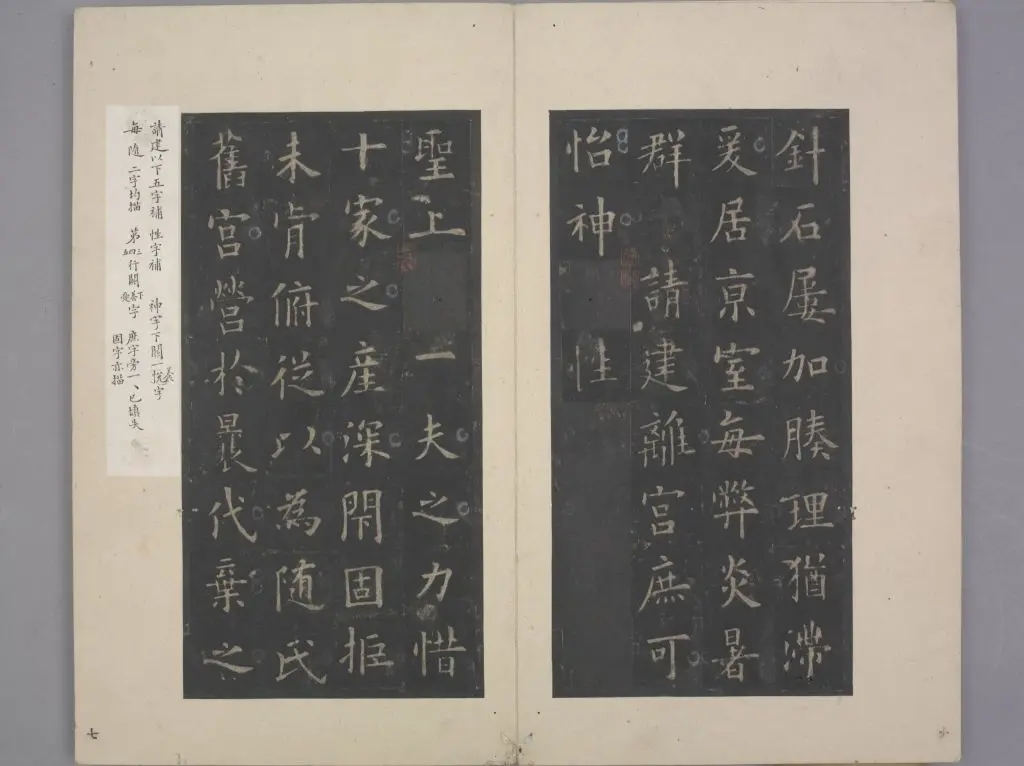 針石屢加腠理猶滯
爰居亰室每弊炎暑
群請建離宮庶可
怡神性
聖上一夫之力惜
十家之產深閇固拒
未肯俯從以為随氏
舊宮營於曩代棄之
請建以下五字補 性字補 神字下闕一悅字
每隨二字均描 第三四行闕字 庶字旁一、已填失
固字亦描
七